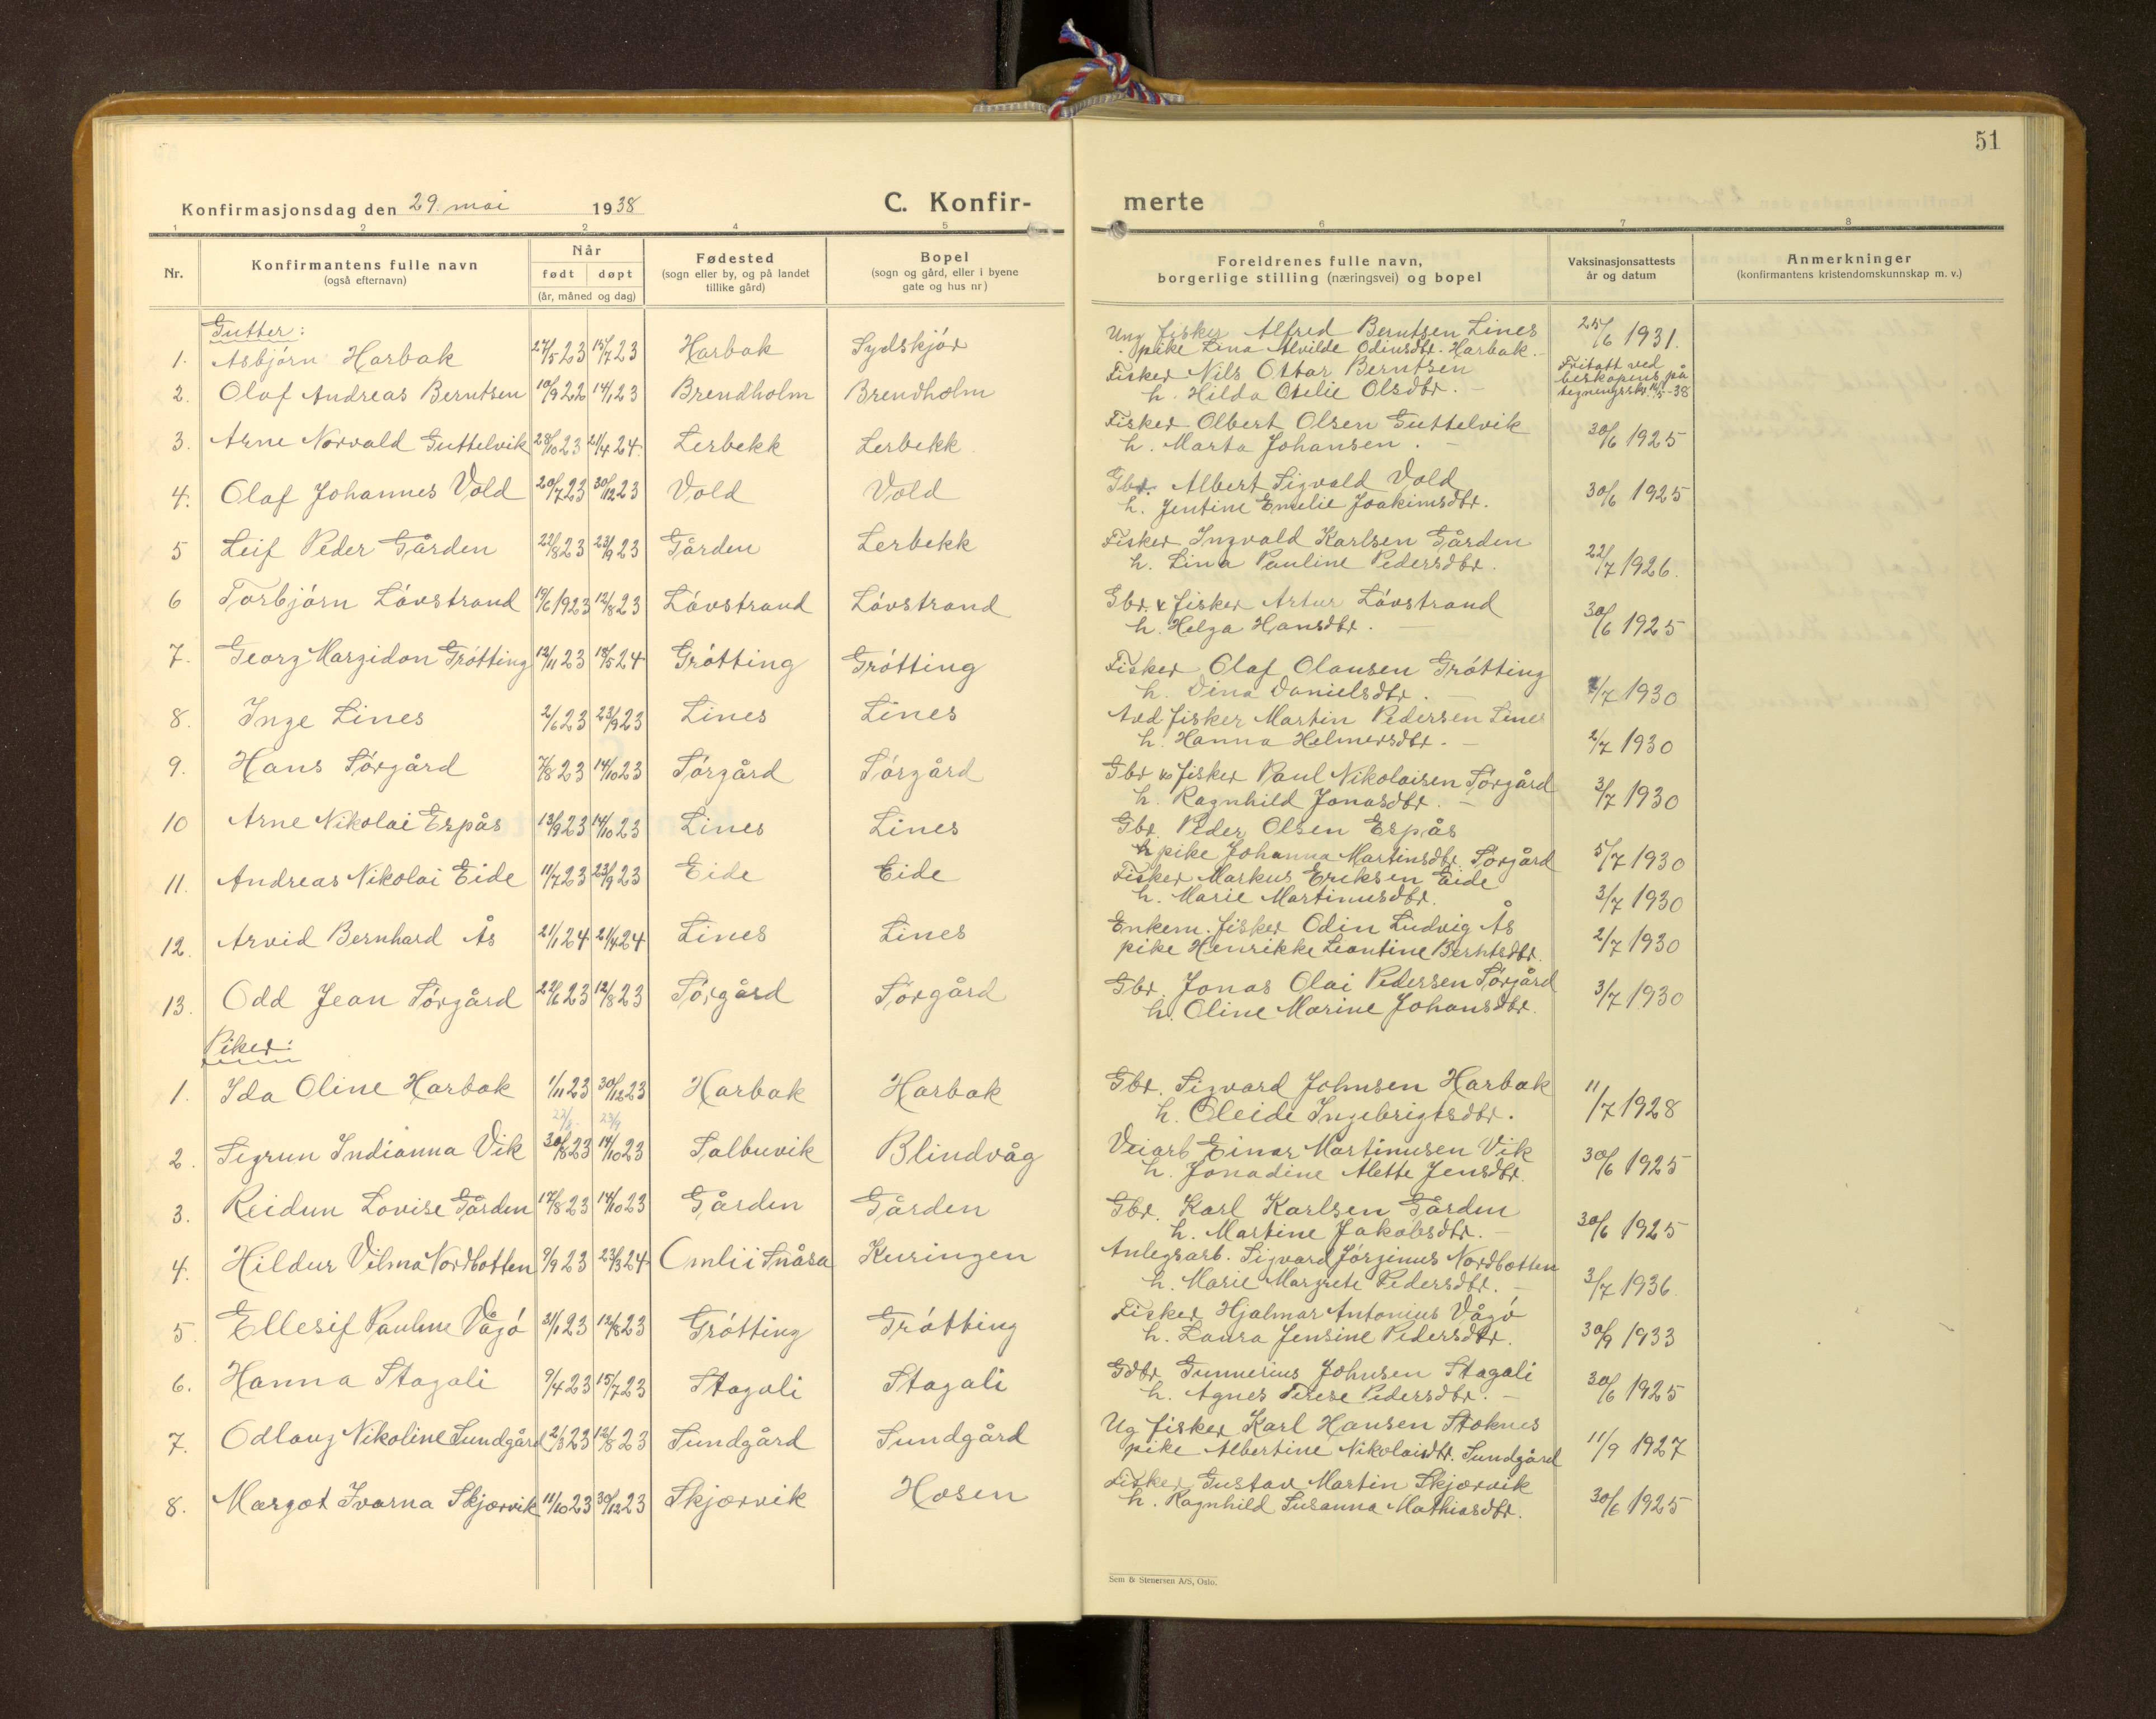 51
Konfirmasjonsdag den 29. mai 1938
C. Konfir-
merte
1 2 2 4 5 6 7 8
Nr.
Konfirmantens fulle navn
(også efternavn)
Når
født døpt
(år, måned og dag)
Fødested
(sogn eller by, og på landet
tillike gård)
Bopel
(sogn og gård, eller i byene
gate og hus nr)
Foreldrenes fulle navn,
borgerlige stilling (næringsvei) og bopel
Vaksinasjonsattests
år og datum
Anmerkninger
(konfirmantens kristendomskunnskap m. v.)
Gutter:
1. Asbjørn Harbak 27/5 23 15/7 23 Harbak Sydskjør Ung fisker Alfred Berntsen Lines 25/6 1931.
pike Lina Alvilde Odinsdtr. Harbak.
2. Olaf Andreas Berntsen 10/9 22 14/1 23 Brendholm Brendholm Fisker Nils Ottar Berntsen Fritatt ved
h. Hilda Otelie Olsdtr. beskapens på
tegningsskr. 14/5-38
3. Arne Norvald Guttelvik 28/10 23 21/4 24. Lerbekk Lerbekk Fisker Olbert Olsen Guttelvik
h. Marta Johansen. 30/6 1925
4. Olaf Johannes Vold 20/7 23 30/12 23 Vold Vold Gbr. Albert Sigvald Vold
h. Jentine Emelie Joakimsdtr. 30/6 1925
5 Leif Peder Gården 22/8 23 23/9 23 Gården Lerbekk Fisker Ingvald Karlsen Gården
h. Lina Pauline Pedersdtr. 22/7 1926.
6 Torbjørn Løvstrand 19/6 1923 12/8 23 Løvstrand Løvstrand Gbr. & fisker Artur Løvstrand
h. Helga Hansdtr. 30/6 1925
7. Georg Margidon Grøtting 12/11 23 18/5 24 Grøtting Grøtting Fisker Olaf Olausen Grøtting
h. Dina Danielsdtr. 2/7 1930
8. Inge Lines 2/6 23 23/9 23 Lines Lines Avd fisker Martin Pedersen Lines
h. Hanna Helmersdtr. 2/7 1930
9. Hans Sørgård 7/8 23 14/10 23 Sørgård Sørgård Gbr & fisker Paul Nikolaisen Sørgård
h. Ragnhild Jonasdtr. 3/7 1930
10 Arne Nikolai Espås 13/9 23 14/10 23 Lines Lines Gbr. Peder Olsen Espås
pike Johanna Martinsdtr. Sørgård 5/7 1930
11. Andreas Nikolai Eide 11/7 23 23/9 23 Eide Eide Fisker Markus Eriksen Eide
h. Marie Martinusdtr. 3/7 1930
12. Arvid Bernhard Ås 21/1 24 21/4 24 Lines Lines Enkem. fisker Odin Ludvig Ås
pike Henrikke Leontine Berntsdtr. 2/7 1930
13. Odd Jean Sørgård 22/6 23 12/8 23 Sørgård Sørgård Gbr. Jonas Olai Pedersen Sørgård
h. Oline Marine Johansdtr. 3/7 1930
Piker:
1. Ida Oline Harbak 1/11 23 30/12 23 Harbak Harbak Gbr. Sigvard Johnsen Harbak
h. Oleide Ingebrigtsdtr. 11/7 1928
23/8 23/9
2. Sigrun Indianna Vik 30/8 23 14/10 23 Salbuvik Blindvåg Veiarb Einar Martinusen Vik
h. Jonadine Alette Jensdtr. 30/6 1925
3. Reidun Lovise Gården 12/8 23 14/10 23 Gården Gården Gbr. Karl Karlsen Gården
h. Martine Jakobsdtr. 30/6 1925
4. Hildur Vilma Nordbotten 9/9 23 23/3 24 Omli i Snåsa Kuringen Anlegsarb. Sigvard Jørginus Nordbotten
h. Marie Margrete Pedersdtr. 3/7 1936
5 Ellesif Pauline Vågø 31/1 23 12/8 23 Grøtting Grøtting Fisker Hjalmar Antonius Vågø
h. Laura Jensine Pedersdtr. 30/9 1933
6. Hanna Stagali 9/4 23 15/7 23 Stagali Stagali Gdbr Gunnerius Johnsen Stagali
h. Agnes Terese Pedersdtr. 30/6 1925
7. Odlaug Nikoline Sundgård 2/3 23 12/8 23 Sundgård Sundgård Ug fisker Karl Hansen Stoknes
pike Albertine Nikolaisdtr. Sundgård 11/9 1927
8. Margot Ivarna Skjærvik 11/10 23 30/12 23 Skjærvik Hosen Fisker Gustav Martin Skjærvik
h. Ragnhild Susanna Mathiasdtr. 30/6 1925
Sem & Stenersen A/S, Oslo.